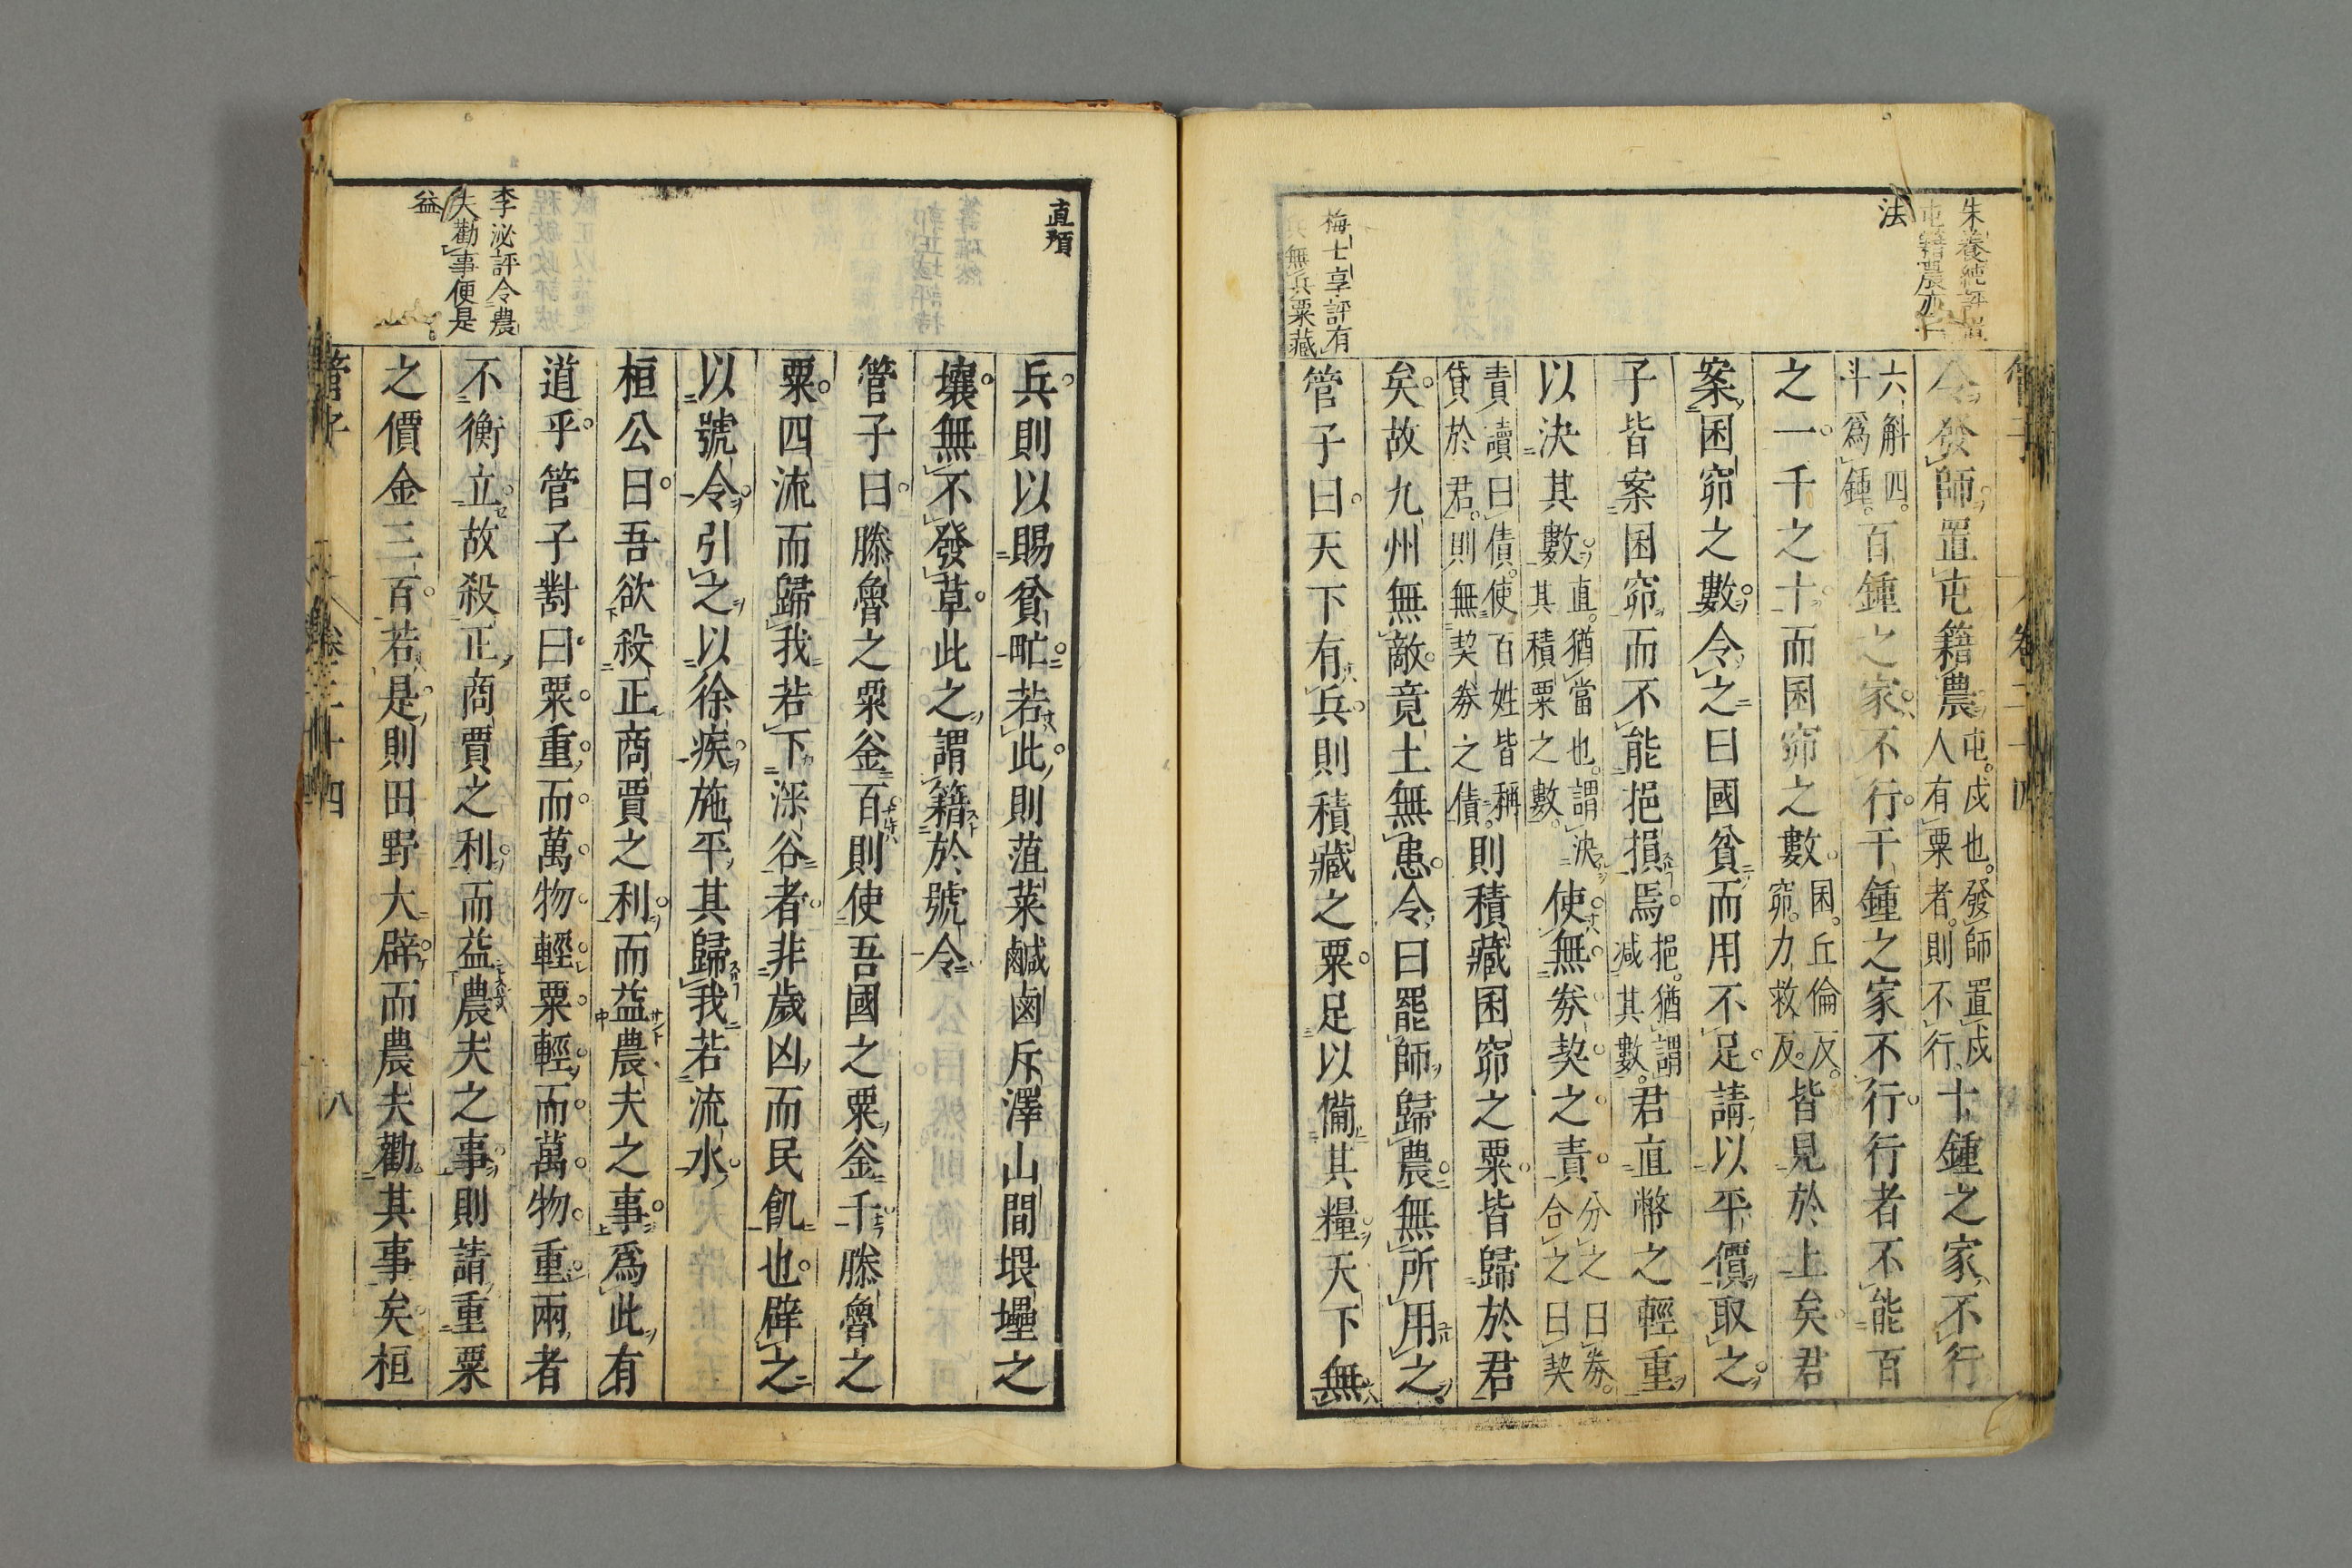 管子 卷二十四
朱養純評置
屯籍農亦一
法
令發師置屯籍農屯。戍也。發師置戍人有粟者。則不行。十鍾之家不行
六斛四斗為鍾。百鍾之家不行千鍾之家不行行者不能百
之一千之十而囷窌之數囷。丘倫反。窌。力救反。皆見於上矣君
案囷窌之數令之曰國貧而用不足請以平價取之
子皆案囷窌而不能挹損焉挹。猶謂減其數。君直幣之輕重
以決其數直。猶當也。謂決其積粟之數。使無券契之責分之曰券。合之曰契
責讀曰債。使百姓皆稱貸於君。則無契券之債。則積藏囷窌之粟皆歸於君
矣故九州無敵竟土無患令曰罷師歸農無所用之
梅士享評有
兵無兵粟藏
管子曰天下有兵則積藏之粟足以備其糧天下無
直預
兵則以賜貧甿若此則菹菜鹹鹵斥澤山間堁壘之
壤無不發草此之謂籍於號令
管子曰滕魯之粟釜百則使吾國之粟釜千滕魯之
粟四流而歸我若下深谷者非歲凶而民飢也辟之
以號令引之以徐疾施平其歸我若流水
桓公曰吾欲殺正商賈之利而益農夫之事為此有
道乎管子對曰粟重而萬物輕粟輕而萬物重兩者
李泌評令農
夫勸事便是
益
不衡立故殺正商賈之利而益農夫之事則請重粟
之價金三百若是則田野大辟而農夫勸其事矣桓
管子 卷二十四 八